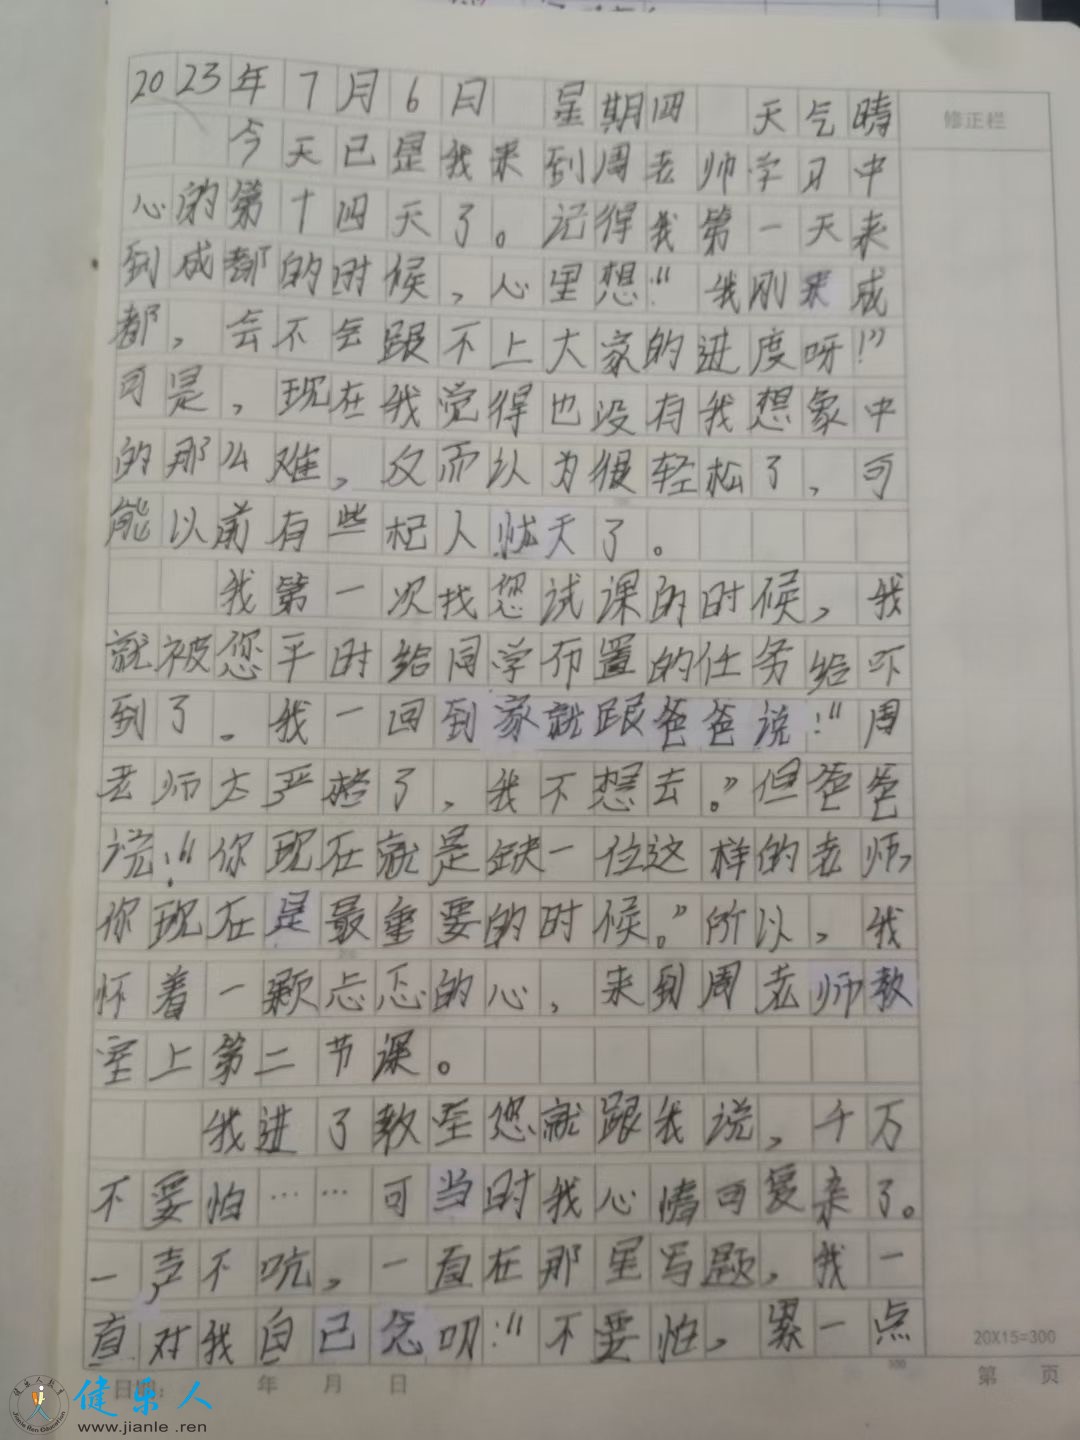 2023年7月6日 星期四 天气晴
今天已是我来到周老师学习中
心的第十四天了。记得我第一天来
到成都的时候，心里想：“我刚来成
都，会不会跟不上大家的进度呀！”
可是，现在我觉得也没有我想象中
的那么难，反而认为很轻松了，可
能以前有些杞人忧天了。
我第一次找您试课的时候，我
就被您平时给同学布置的任务给吓
到了。我一回到家就跟爸爸说：“周
老师太严格了，我不想去。”但爸爸
说：“你现在就是缺一位这样的老师，
你现在是最重要的时候。”所以，我
怀着一颗忐忑的心，来到周老师教
室上第二节课。
我进了教室您就跟我说，千万
不要怕……可当时我心情可复杂了。
一声不吭，一直在那里写题，我一
直对我自己念叨：“不要怕，累一点
修正栏
20X15=300
300
日期： 年 月 日
第 页
健乐人教育
Jianle Ren Education
健乐人
www.jianle.ren